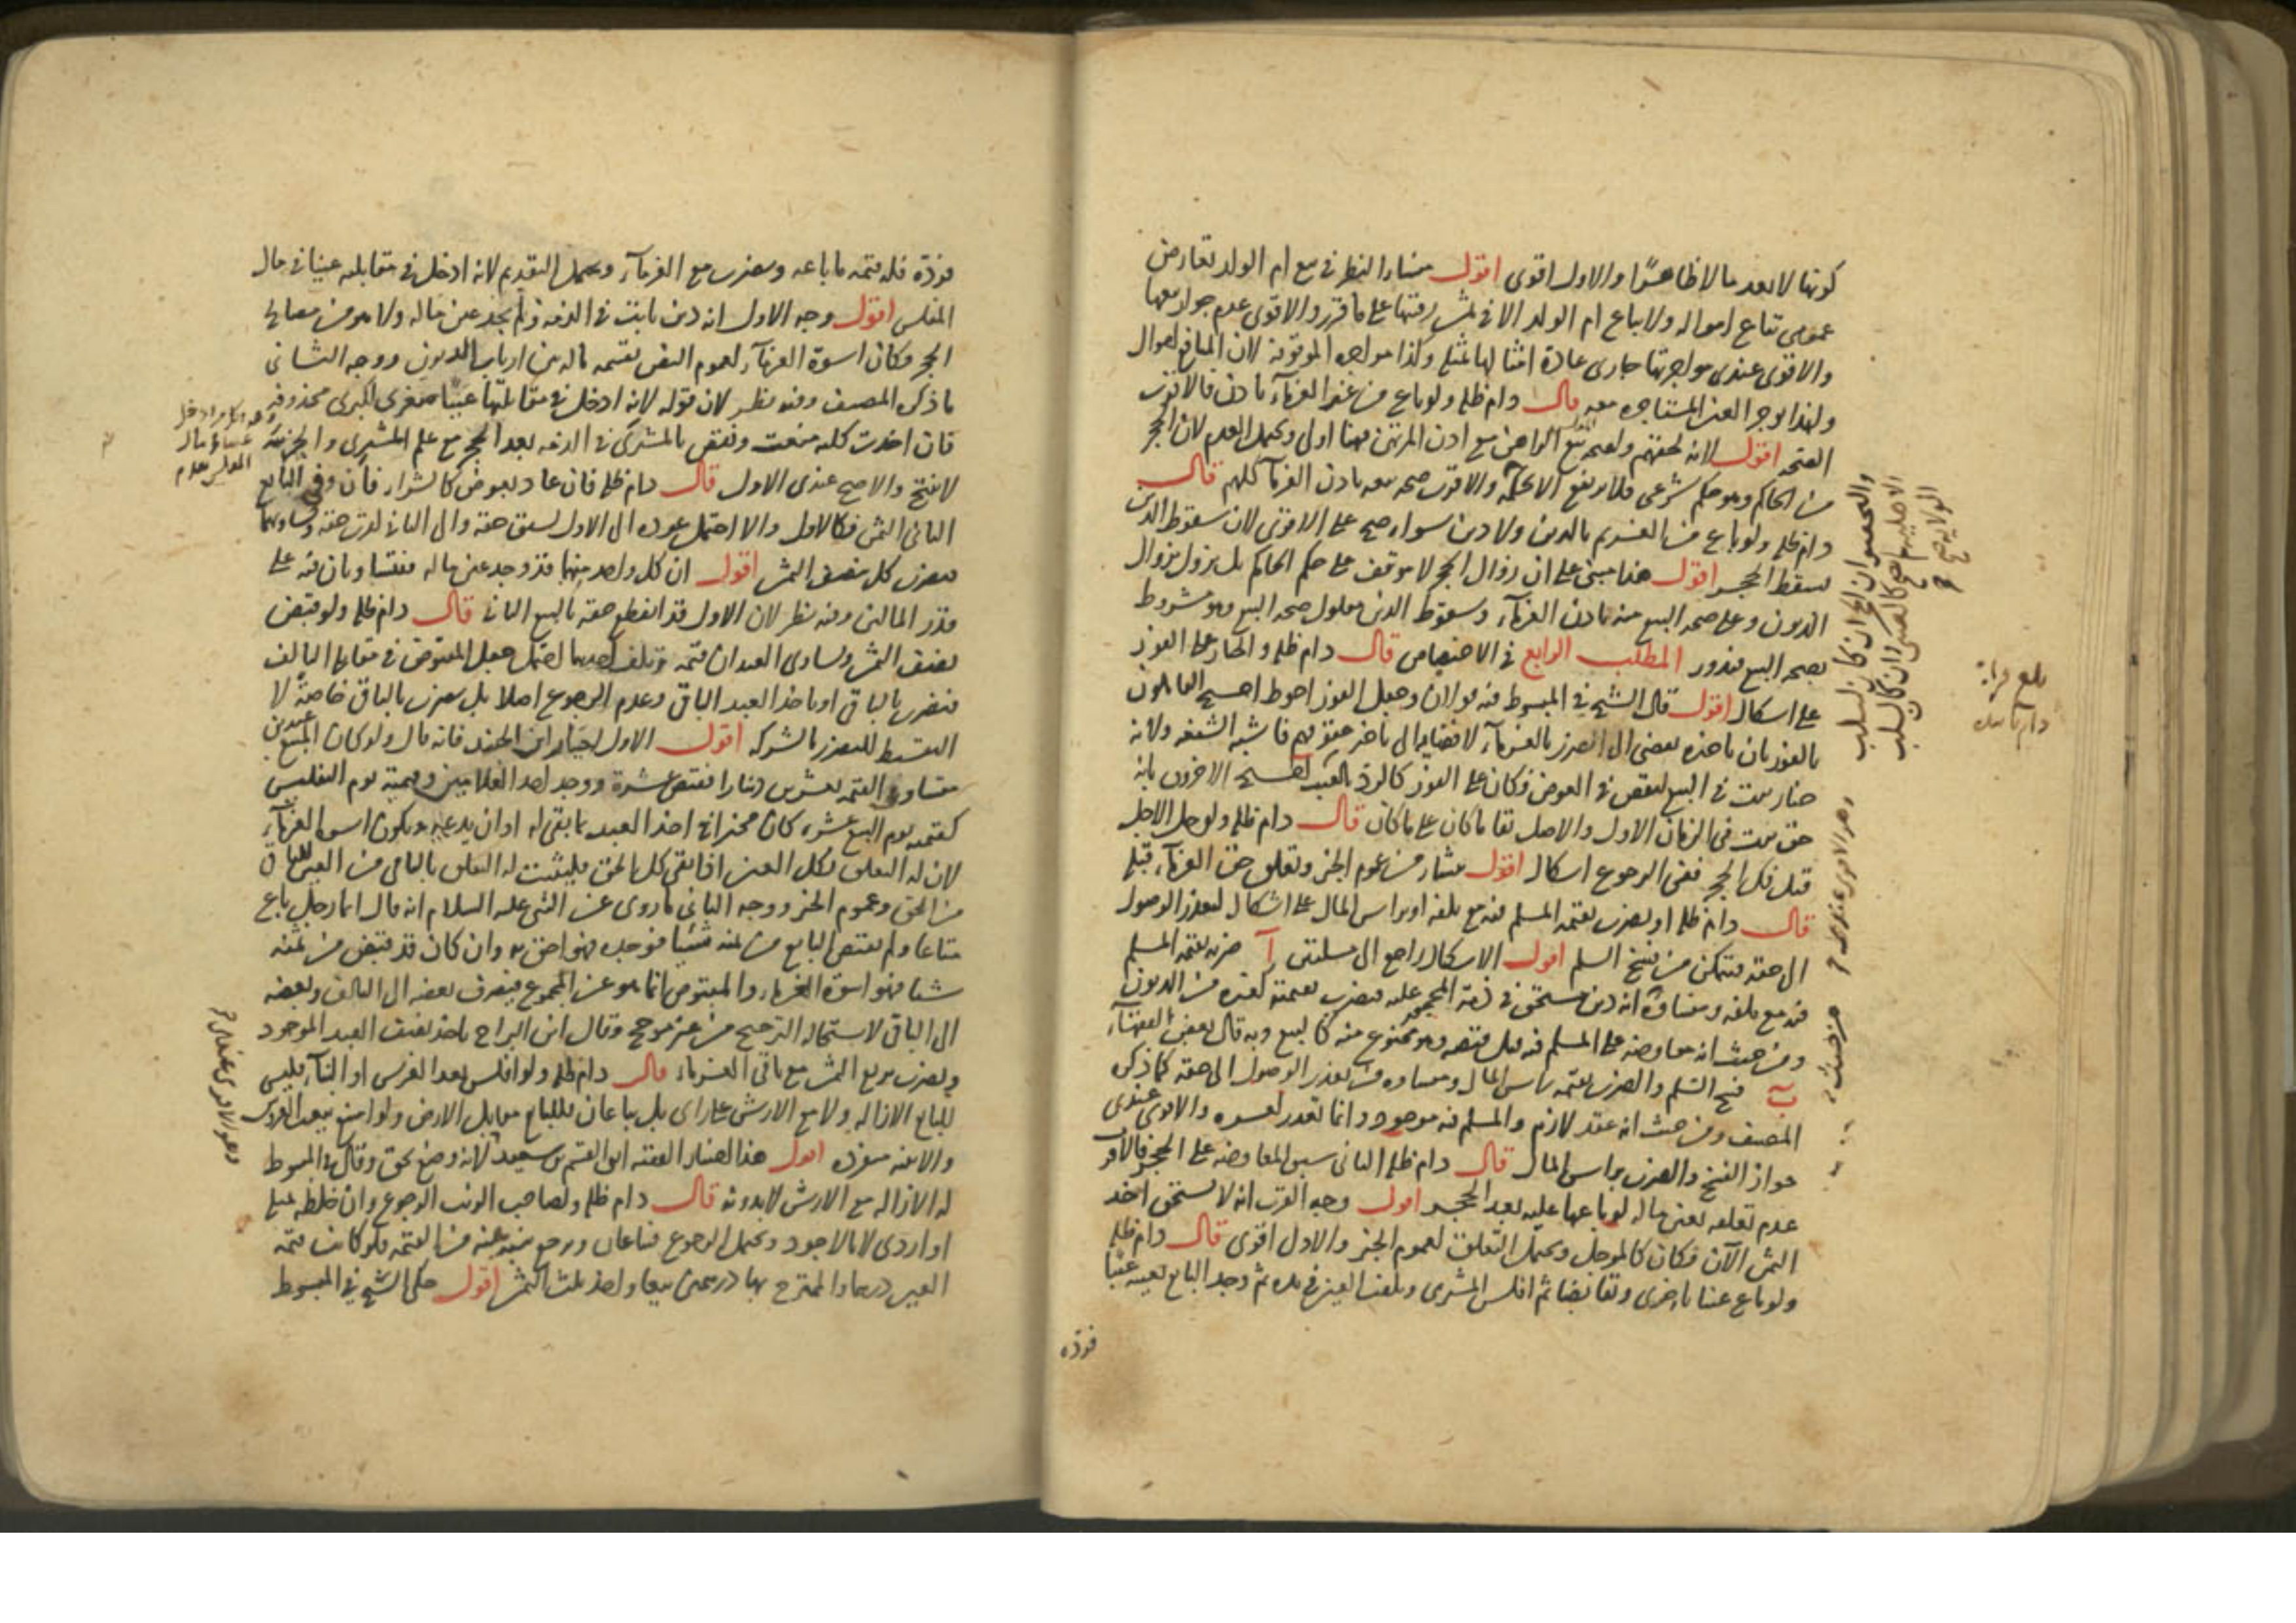 كونها لا تعد مالا ظاهرا والاول اقوى اقول منشاء النظر في بيع ام الولد تعارض
عمومى تباع امواله ولا يباع ام الولد الا في ثمن رقبتها على ما قرر والاقوى عدم جواز بيعها
والاقوى عندى مواجرتها جارى عادة امثالها بمثله وكذا مواجرة الموقوفة لان المنافع اموال
ولهذا يوجر العين المستاجرة معه قال دام ظله ولو باع من غير الغرماء باذن فالاقرب
الصحة اقول لانه لحقهم ولصحة بيع الراهن مع اذن المرتهن فهنا اولى ويحتمل العدم لان الحجر
من الحاكم وهو حكم شرعى فلا يرتفع الا بحكمه والاقوى صحة بيعه باذن الغرماء كلهم قال
دام ظله ولو باع من الغريم بالدين ولا دين سواه صح على الاقوى لان سقوط الدين
يسقط الحجر اقول هذا مبنى على ان زوال الحجر لا يتوقف على حكم الحاكم بل يزول بزوال
الديون وعلى صحة البيع منه باذن الغرماء وسقوط الدين معلول صحة البيع وهو مشروط
بصحة البيع فيدور المطلب الرابع في الاختصاص قال دام ظله والخيار على الفور
على اشكال اقول قال الشيخ في المبسوط فيه قولان وجعل الفور احوط احتج القائلون
بالفور بان تاخيره يفضى الى الضرر بالغرماء لافضائه الى تاخير حقوقهم فاشبه الشفعة ولانه
خيار يثبت في البيع لنقص في العوض فكان على الفور كالرد بالعيب احتج الاخرون بانه
حق يثبت في الزمان الاول والاصل بقاء ما كان على ما كان قال دام ظله ولو حل الاجل
قبل فك الحجر ففى الرجوع اشكال اقول منشاء من عموم الخبر وتعلق حق الغرماء قبله
قال دام ظله او يضرب بقيمة المسلم فيه مع تلفه او براس المال على اشكال لتعذر الوصول
الى حقه فيتمكن من فسخ السلم اقول الاشكال راجع الى مسئلتين آ ضربه بقيمة المسلم
فيه مع تلفه ومنشاؤه انه دين مستحق في ذمة المحجور عليه فيضرب بقيمته كغيره من الديون
ومن حيث انه معاوضة على المسلم فيه قبل قبضه وهو ممنوع منه كالبيع وبه قال بعض الفقهاء
ب فسخ السلم والضرب بقيمة راس المال ومنشاوه من تعذر الوصول الى حقه كما ذكره
المصنف ومن حيث انه عقد لازم والمسلم فيه موجود وانما تعذر لعسره والاقوى عندى
جواز الفسخ والضرب براس المال قال دام ظله الثانى سبق المعاوضة على الحجر فالاقرب
عدم تعلقه بعين ماله لو باعها عليه بعد الحجر اقول وجه القرب انه لا يستحق اخذ
الثمن الآن فكان كالموجل ويحتمل التعلق لعموم الخبر والاول اقوى قال دام ظله
ولو باع عينا باخرى وتقابضا ثم افلس المشترى وتلفت العين في يده ثم وجد البايع بعينه عيبا
فرده
بلغ قراءة
دام تاييده
فرده فله قيمة ما باعه ويضرب مع الغرماء ويحتمل التقديم لانه ادخل في مقابله عينا في مال
المفلس اقول وجه الاول انه دين ثابت في الذمة ولم يجد عين ماله ولا هو من مصالح
الحجر فكان اسوة الغرماء لعموم النص بقسمة ماله بين ارباب الديون ووجه الثانى
ما ذكره المصنف وفيه نظر لان قوله لانه ادخل في مقابلتها عينا صغرى الكبرى محذوفة
فان اخذت كلية منعت ونقض بالمشترى في الذمة بعد الحجر مع علم المشترى والجزئية
لا تنتج والاصح عندى الاول قال دام ظله فان عاد بعوض كالشراء فان وفى البايع
الثانى الثمن فكالاول والا احتمل عوده الى الاول لسبق حقه والى الثانى لقرب حقه وتساويهما
فيضرب كل بنصف الثمن اقول ان كل واحد منهما قد وجد عين ماله فيتساويان فيه على
قدر المالين وفيه نظر لان الاول قد انقطع حقه بالبيع الثانى قال دام ظله ولو قبض
نصف الثمن وتساوى العبدان قيمة وتلف احدهما احتمل جعل المقبوض في مقابلة التالف
فيضرب بالباقى او ياخذ العبد الباقى وعدم الرجوع اصلا بل يضرب بالباقى خاصة لا
التقسيط للتضرر بالشركة اقول الاول اختيار ابن الجنيد فانه قال ولو كان المبيع عبدين
متساوى القيمة بعشرين دينارا فقبض عشرة ووجد احد الغلامين وقيمته يوم التفليس
كقيمته يوم البيع عشرة كان مخيرا في اخذ العبد بما بقى له او ان يدعه ويكون اسوة الغرماء
لان له التعلق بكل العين اذا بقى كل الحق فليثبت له التعلق بالباقى من العين للباقى
من الحق وعموم الخبر ووجه الثانى ما روى عن النبى عليه السلام انه قال ايما رجل باع
متاعا ولم يقبض البايع من ثمنه شيئا فوجده فهو احق به وان كان قد قبض من ثمنه
شيئا فهو اسوة الغرماء والمقبوض انما هو عن المجموع فيصرف بعضه الى التالف وبعضه
الى الباقى لاستحالة الترجيح من غير مرجح وقال ابن البراج ياخذ نصف العبد الموجود
ويضرب بربع الثمن مع باقى الغرماء قال دام ظله ولو افلس بعد الغرس او البناء فليس
للبايع الازالة ولا مع الارش على راى بل يباعان فللبايع مقابل الارض ولو امتنع بيعت الغروس
والابنية منفردة اقول هذا اختيار الفقيه ابى القسم بن سعيد لانه وضع بحق وقال في المبسوط
له الازالة مع الارش لا بدونه قال دام ظله ولصاحب الزيت الرجوع وان خلطه بمثله
او اردى لا بالاجود ويحتمل الرجوع فيباعان ويرجع بنسبة عينه من القيمة فلو كانت قيمة
العين درهما والممتزج بها درهمين بيعا واخذ ثلث الثمن اقول حكى الشيخ في المبسوط